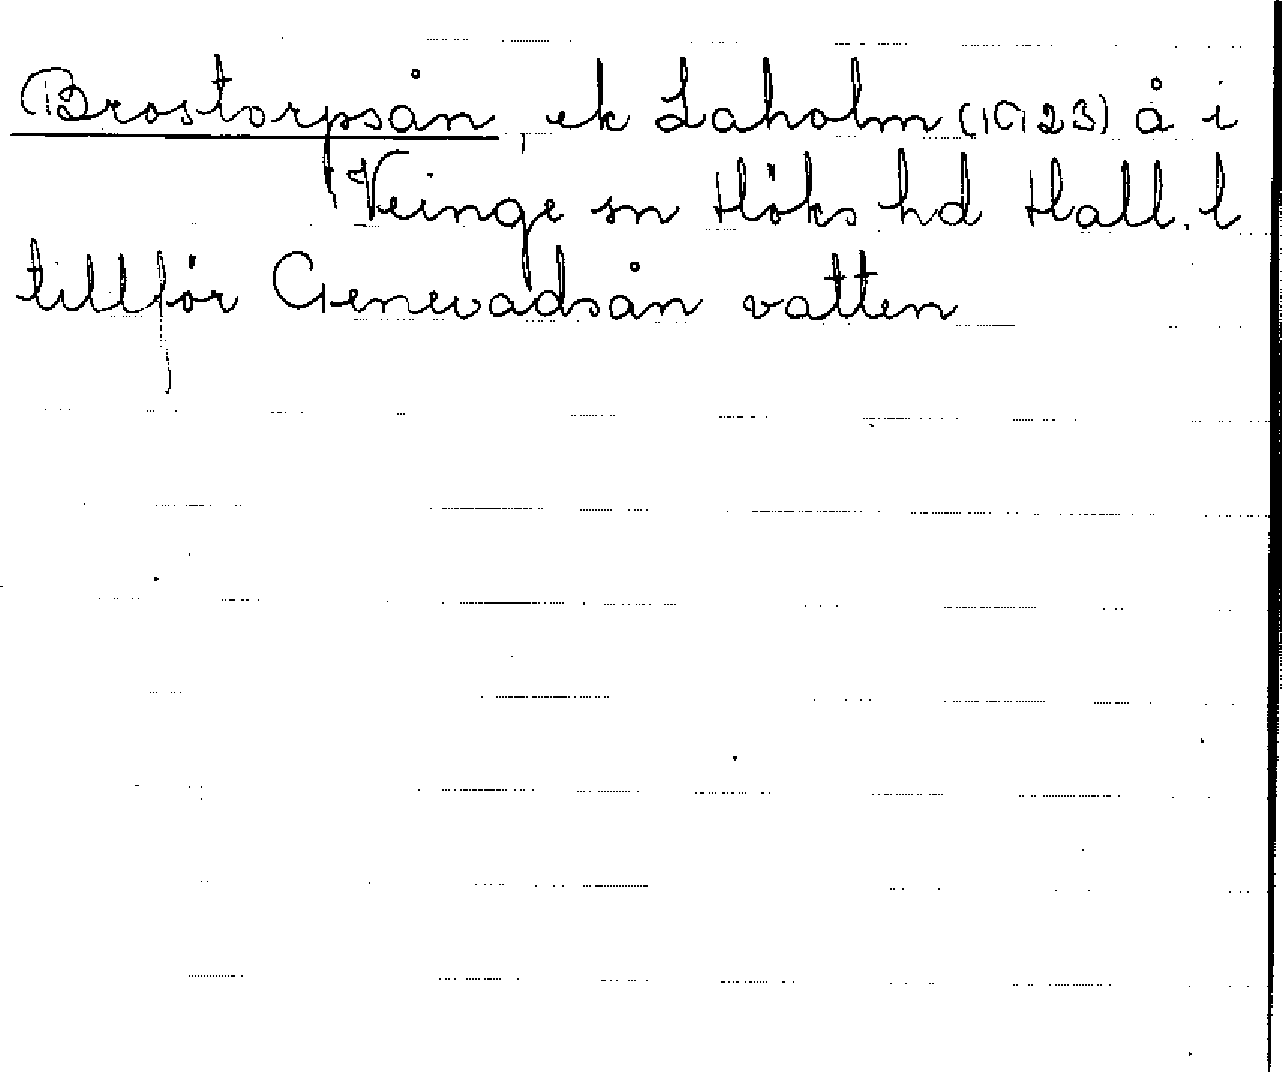 Brostorpsån, ek Laholm (1923) å i
Veinge sn Höks hd Hall. l
tillför Genevadsån vatten